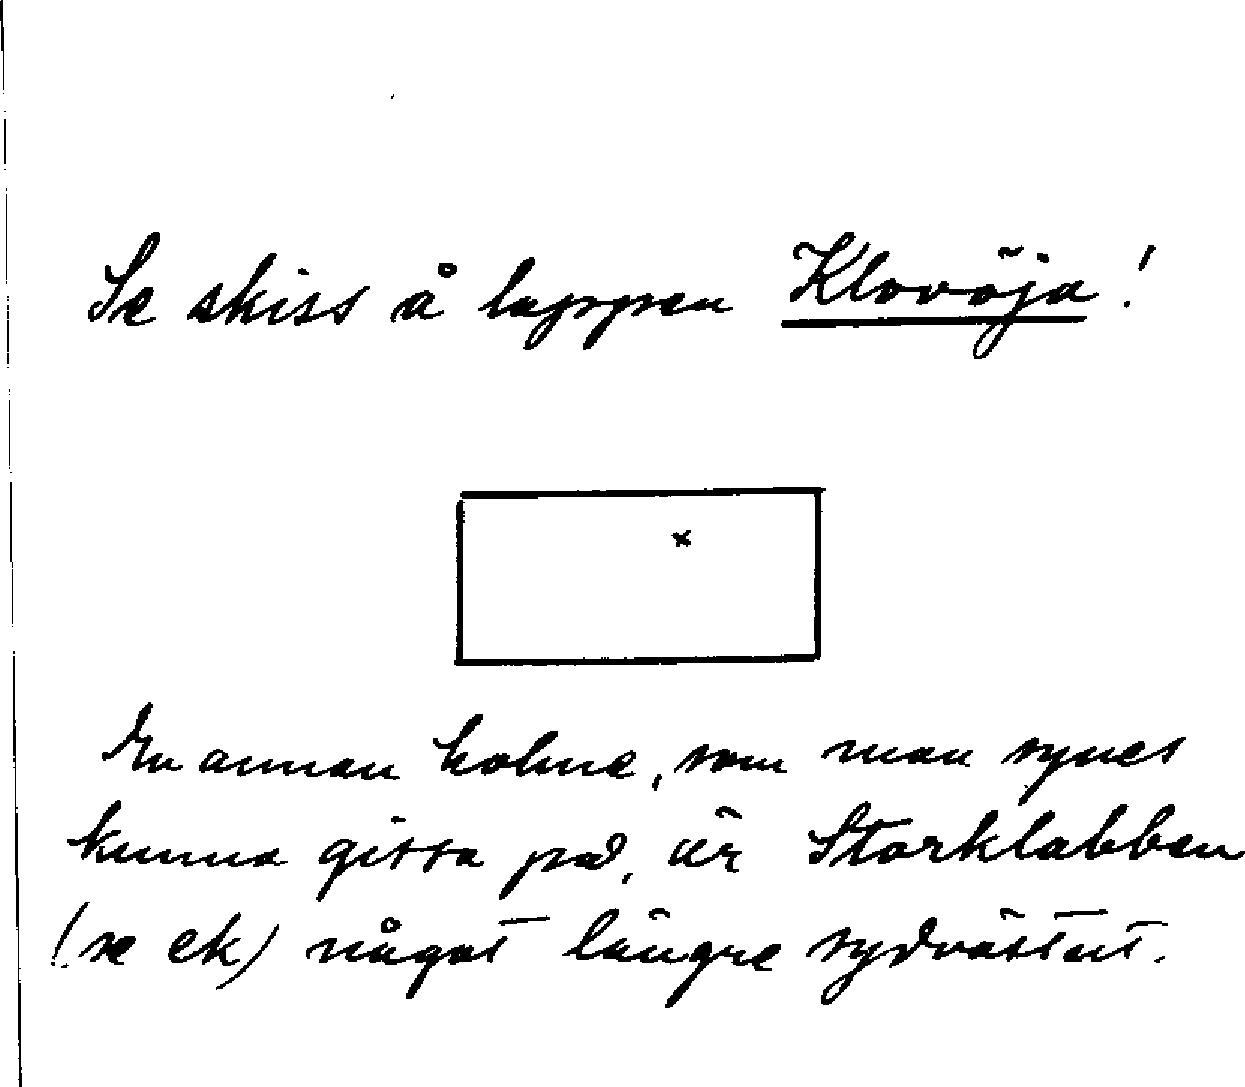 Se skiss å lappen Klovöja!
x
En annan holme, som man synes
kunna gissa på, är Storklabben
(se ek) något längre sydvästut.